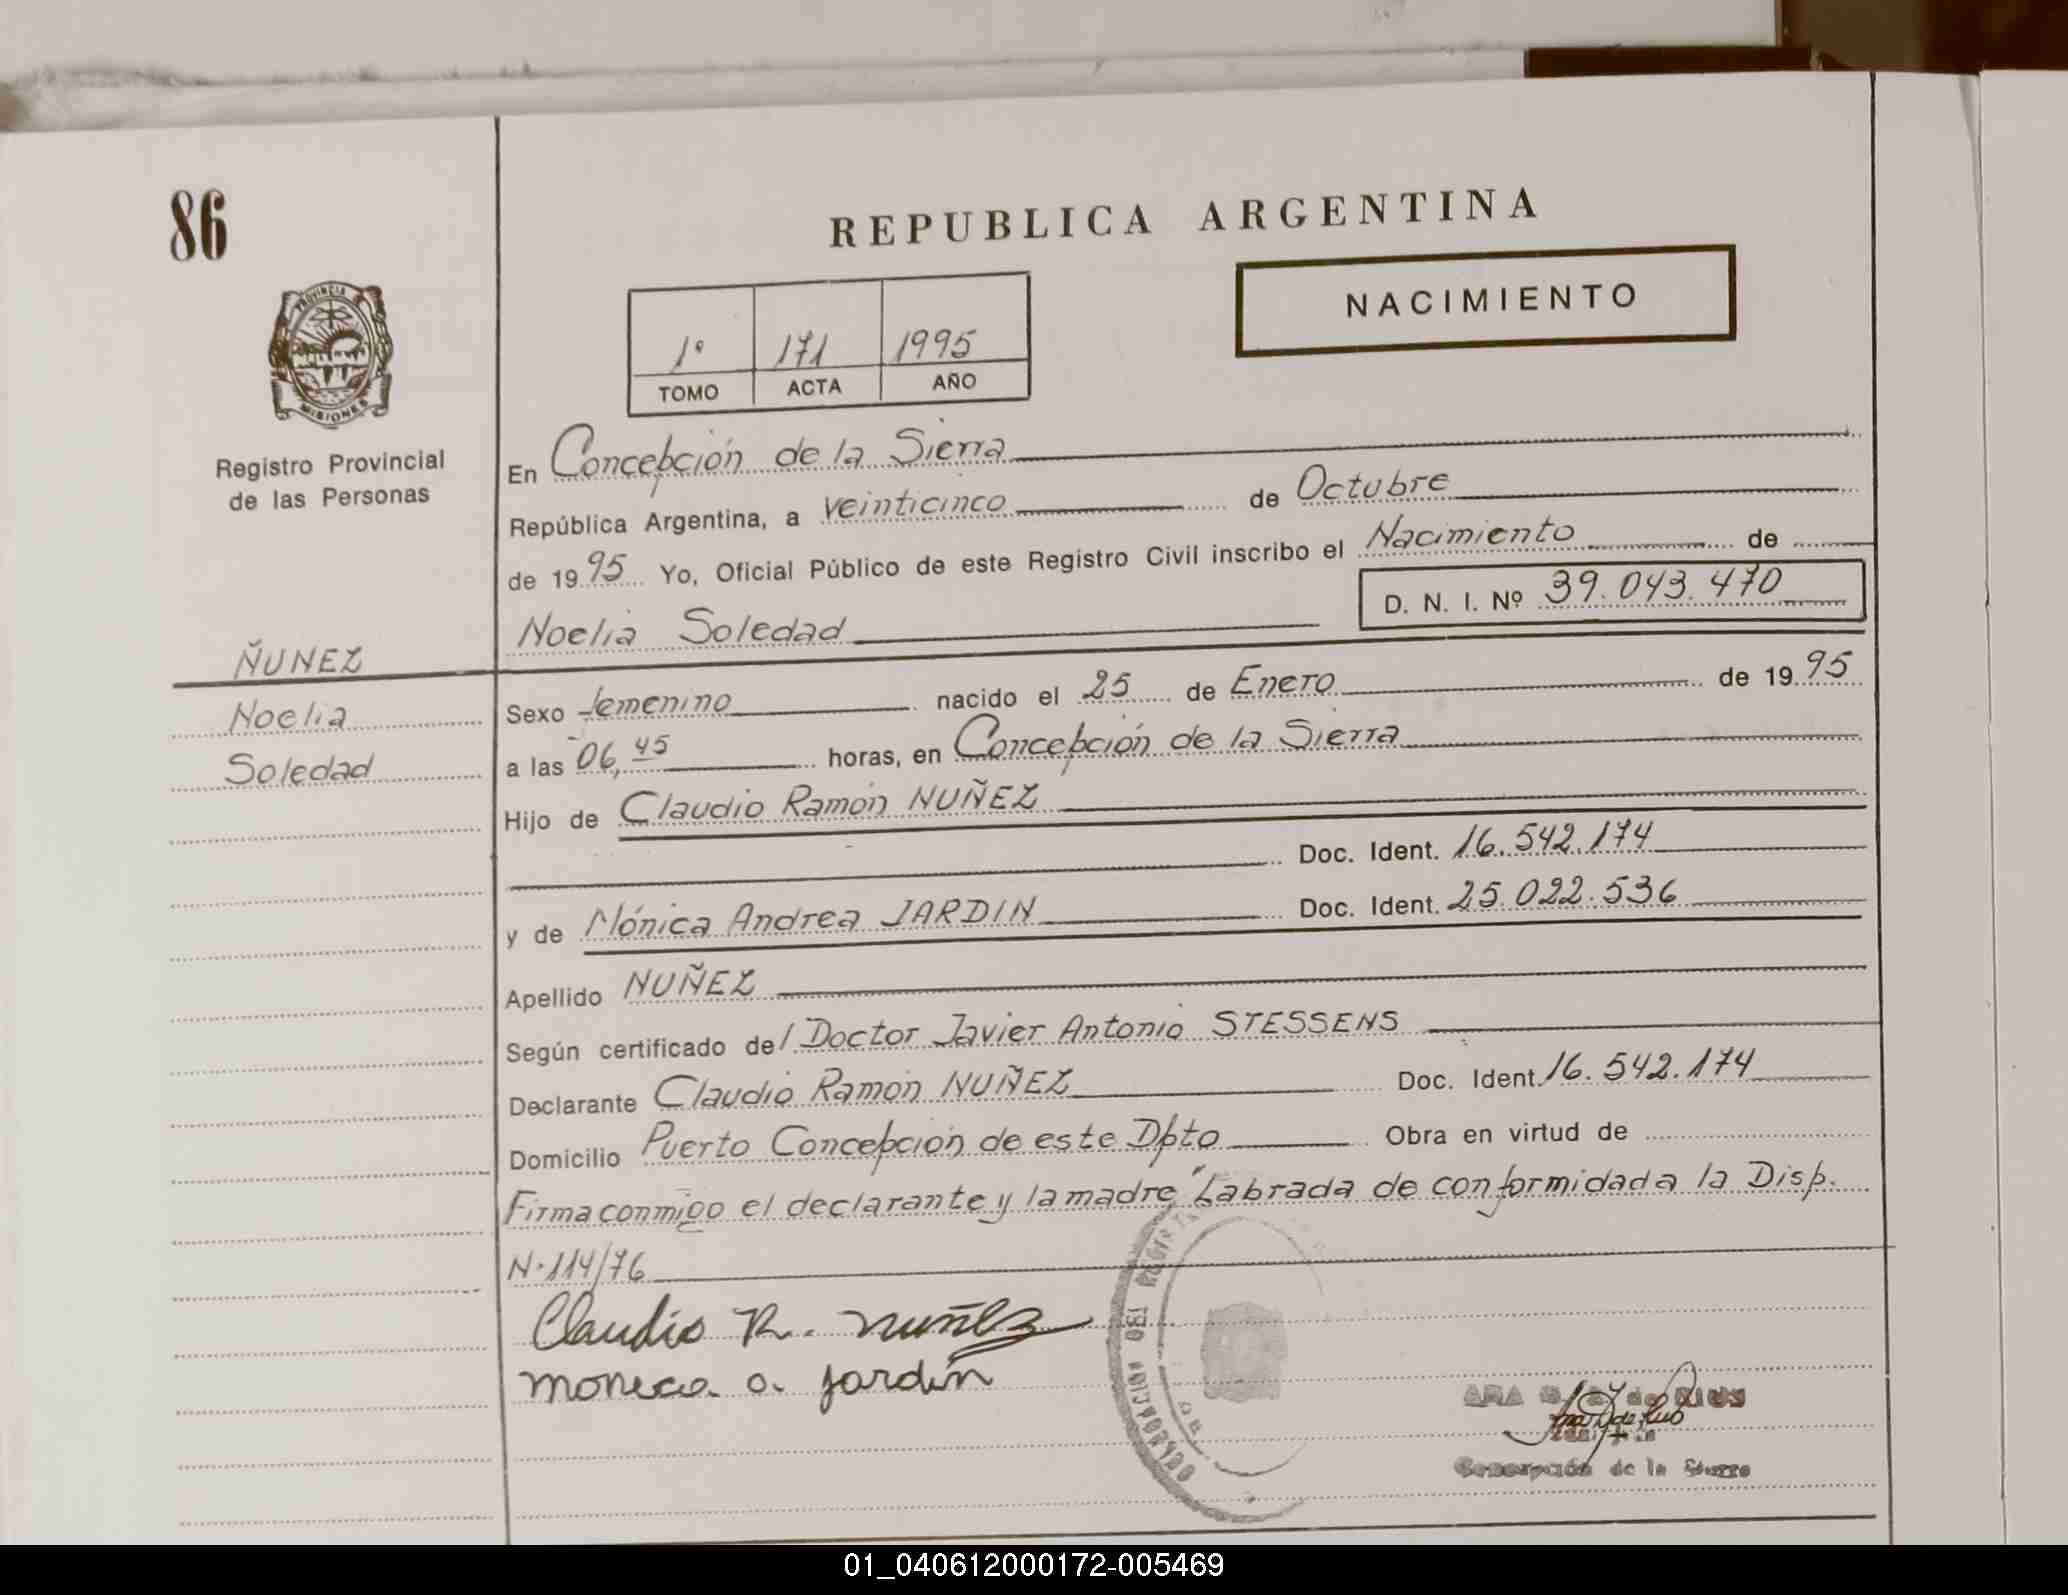 86
REPUBLICA ARGENTINA
NACIMIENTO
1º 171 1995
TOMO ACTA AÑO
PROVINCIA DE
MISIONES
Registro Provincial
de las Personas
En Concepción de la Sierra
República Argentina, a veinticinco de Octubre
de 1995 Yo, Oficial Público de este Registro Civil inscribo el Nacimiento de
D. N. I. Nº 39.043.470
Noelia Soledad
ÑUNEZ
Noelia
Soledad
Sexo femenino nacido el 25 de Enero de 1995
a las 06,45 horas, en Concepción de la Sierra
Hijo de Claudio Ramón NUÑEZ
Doc. Ident. 16.542.174
y de Mónica Andrea JARDIN Doc. Ident. 25.022.536
Apellido NUÑEZ
Según certificado del Doctor Javier Antonio STESSENS
Declarante Claudio Ramón NUÑEZ Doc. Ident 16.542.174
Domicilio Puerto Concepción de este Dpto Obra en virtud de
Firma conmigo el declarante y la madre "Labrada de conformidad a la Disp.
N·114/76
Claudio R. nuñez
moneca a. jardín
DEL REGISTRO
de RIOS
Concepción de la Sierra
01_040612000172-005469